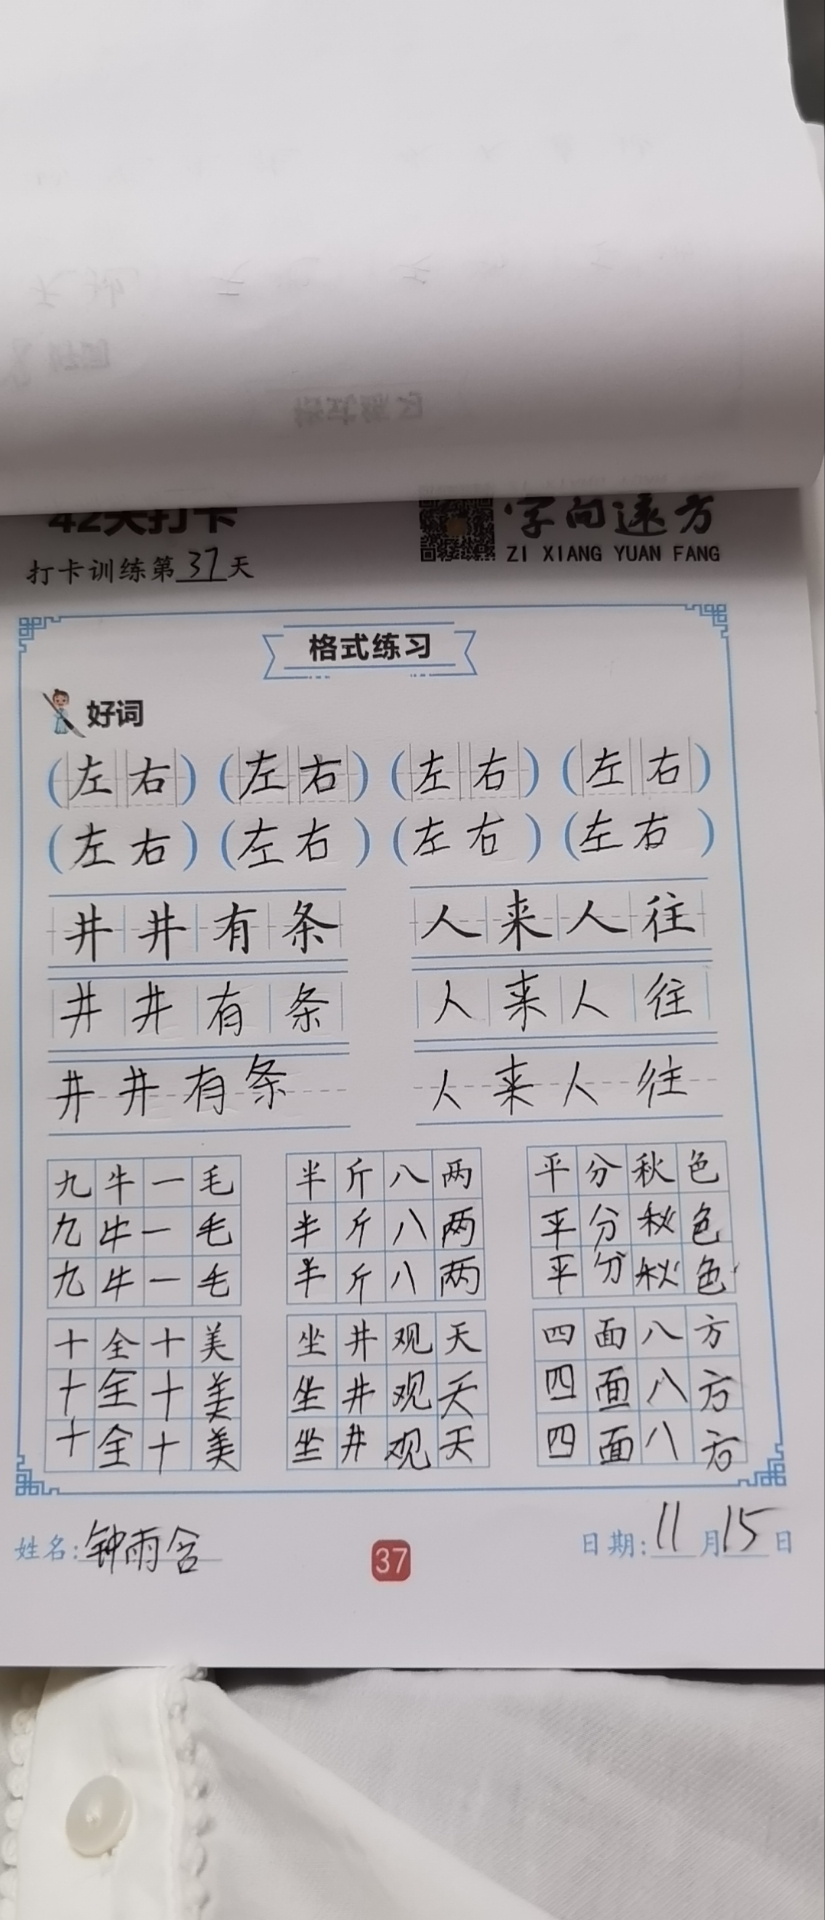 42天打卡
字向远方
ZI XIANG YUAN FANG
打卡训练第37天
格式练习
好词
(左右)(左右)(左右)(左右)
(左右)(左右)(左右)(左右)
井井有条 人来人往
井井有条 人来人往
井井有条 人来人往
九牛一毛 半斤八两 平分秋色
九牛一毛 半斤八两 平分秋色
九牛一毛 半斤八两 平分秋色
十全十美 坐井观天 四面八方
十全十美 坐井观天 四面八方
十全十美 坐井观天 四面八方
姓名:钟雨含 37 日期:11月15日